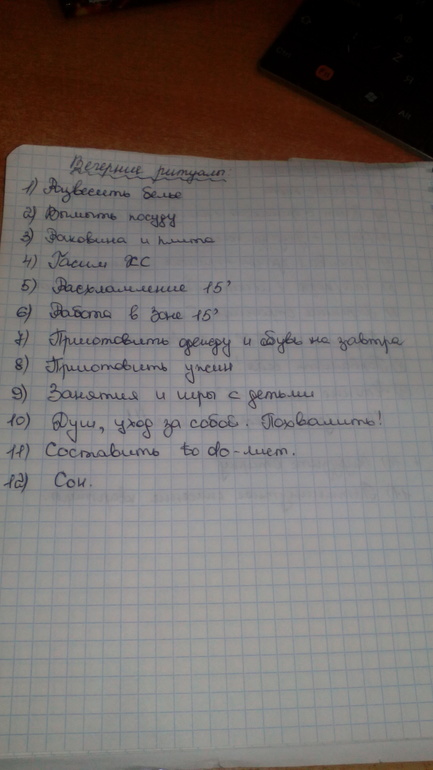 Вечерние ритуалы
1) Развесить белье
2) Вымыть посуду
3) Раковина и плита
4) Гасим ХС
5) Расхламление 15'
6) Работа в зоне 15'
7) Приготовить одежду и обувь на завтра
8) Приготовить ужин
9) Занятия и игры с детьми
10) Душ, уход за собой. Похвалить!
11) Составить to do-лист.
12) Сон.